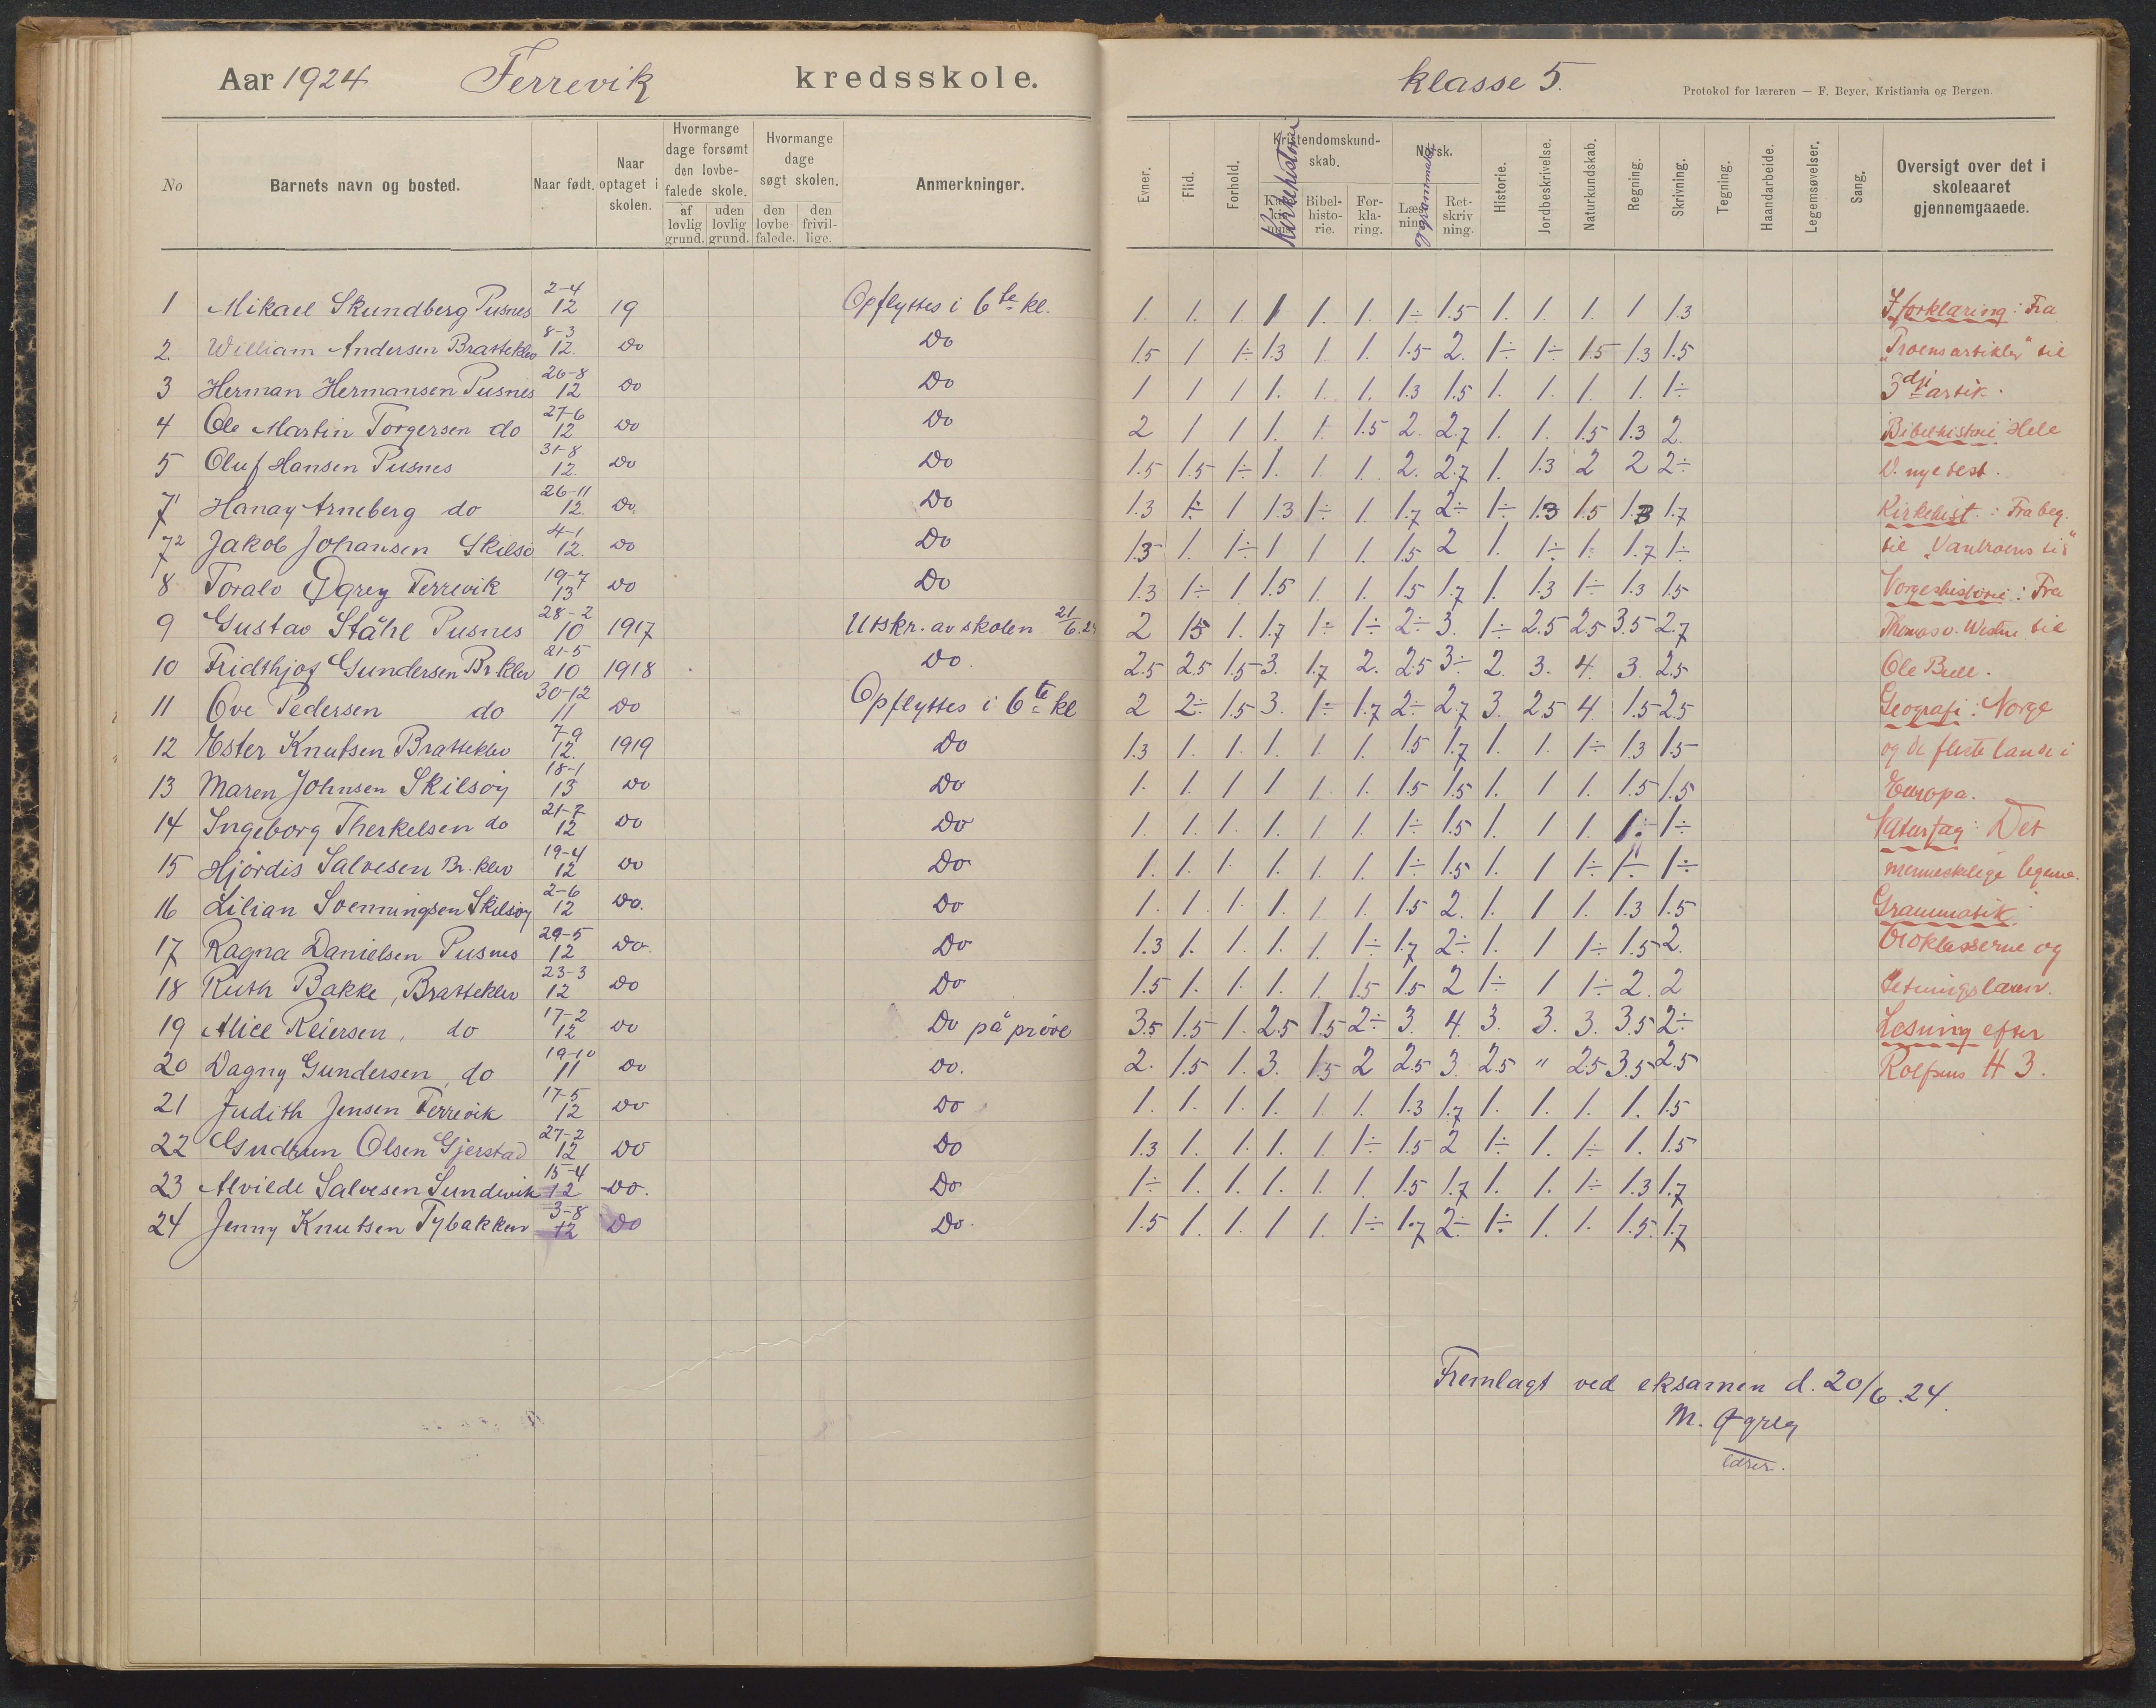 Aar 1924 Ferrevik kredsskole.
klasse 5.
Protokol for læreren — F. Beyer. Kristiania og Bergen.
No
Barnets navn og bosted.
Naar født.
Naar optaget i skolen.
Hvormange dage forsømt den lovbefalede skole.
af lovlig grund.
uden lovlig grund.
Hvormange dage søgt skolen.
den lovbefalede.
den frivillige.
Anmerkninger.
Evner.
Flid.
Forhold.
Kristendomskundskab.
Kirkehistori
Bibelhistorie.
Forklaring.
Norsk.
Læsning
og grammatik
Retskrivning.
Historie.
Jordbeskrivelse.
Naturkundskab.
Regning.
Skrivning.
Tegning.
Haandarbeide.
Legemsøvelser.
Sang.
Oversigt over det i skoleaaret gjennemgaaede.
1 Mikael Skundberg Pusnes 2-4 12 19 Opflyttes i 6te kl. 1. 1. 1. 1 1. 1. 1÷ 1.5 1. 1. 1. 1 1.3
2. William Andersen Bratteklev 8-3 12. Do Do 1.5 1 1÷ 1.3 1 1. 1.5 2. 1÷ 1÷ 1.5 1.3 1.5
3 Herman Hermansen Pusnes 26-8 12 Do Do 1 1 1 1. 1. 1. 1.3 1.5 1. 1. 1. 1. 1÷
4 Ole Martin Torgersen do 27-6 12 Do Do 2 1 1 1. 1. 1.5 2. 2.7 1. 1. 1.5 1.3 2.
5 Oluf Hansen Pusnes 31-8 12. Do Do 1.5 1.5 1÷ 1. 1. 1. 2. 2.7 1. 1.3 2 2 2÷
7 1 Hanay Arneberg do 26-11 12. Do Do 1.3 1÷ 1 1.3 1÷ 1. 1.7 2÷ 1÷ 1.3 1.5 1.3 1.7
7 2 Jakob Johansen Skilsö 4-1 12. Do Do 1.3 1. 1÷ 1 1 1. 1.5 2 1. 1÷ 1. 1.7 1÷
8 Toralv Øgrey Ferrevik 19-7 13 Do Do 1.3 1÷ 1 1.5 1. 1. 1.5 1.7 1. 1.3 1÷ 1.3 1.5
9 Gustav Ståhl Pusnes 28-2 10 1917 Utskr. av skolen 21/6.24 2 1.5 1. 1.7 1÷ 1÷ 2÷ 3. 1÷ 2.5 2.5 3.5 2.7
10 Fridthjof Gundersen Br.klev 21-5 10 1918 Do. 2.5 2.5 1.5 3. 1.7 2. 2.5 3÷ 2. 3. 4. 3. 2.5
11 Ove Pedersen do 30-12 11 Do Opflyttes i 6te kl 2 2÷ 1.5 3. 1÷ 1.7 2÷ 2.7 3. 2.5 4. 1.5 2.5
12 Ester Knutsen Bratteklev 7-9 12. 1919 Do 1.3 1. 1. 1. 1. 1. 1.5 1.7 1. 1. 1÷ 1.3 1.5
13 Maren Johnsen Skilsöy 18-1 13 Do Do 1. 1. 1 1 1. 1. 1.5 1.5 1. 1 1. 1.5 1.5
14 Ingeborg Therkelsen do 21-7 12 Do Do 1. 1. 1. 1. 1. 1. 1÷ 1.5 1. 1 1. 1÷ 1÷
15 Hjördis Salvesen Br.klev 19-4 12 Do Do 1. 1. 1. 1. 1. 1. 1÷ 1.5 1. 1 1÷ 1÷ 1÷
16 Lilian Svenningsen Skilsöy 2-6 12 Do. Do 1. 1. 1. 1. 1. 1. 1.5 2. 1. 1 1. 1.3 1.5
17 Ragna Danielsen Pusnes 29-5 12 Do. Do 1.3 1. 1. 1. 1. 1÷ 1.7 2÷ 1. 1 1÷ 1.5 2.
18 Ruth Bakke, Bratteklev 23-3 12 Do Do 1.5 1. 1. 1. 1. 1.5 1.5 2 1÷ 1 1÷ 2. 2
19 Alice Reiersen, do 17-2 12 Do Do på pröve 3.5 1.5 1. 2.5 1.5 2÷ 3. 4. 3. 3. 3. 3.5 2÷
20 Dagny Gundersen, do 19-10 11 Do Do. 2. 1.5 1. 3. 1.5 2 2.5 3. 2.5 " 2.5 3.5 2.5
21 Judith Jensen Ferrevik 17-5 12 Do Do 1. 1. 1. 1. 1. 1. 1.3 1.7 1. 1. 1. 1. 1.5
22 Gudrun Olsen Gjerstad 27-2 12 Do Do 1.3 1. 1. 1. 1. 1÷ 1.5 2 1÷ 1. 1÷ 1. 1.5
23 Alvilde Salvesen Sundevik 15-4 12 Do. Do 1÷ 1. 1. 1. 1. 1. 1.5 1.7 1. 1. 1÷ 1.3 1.7
24 Jenny Knutsen Tybakken 3-8 12 Do Do. 1.5 1. 1. 1 1. 1÷ 1.7 2÷ 1÷ 1. 1. 1.5. 1.7
I forklaring: Fra
"Troensartikler" til
3dje artik.
Bibelhistori Hele
D. nye test.
Kirkehist.: Fra beg.
til "Vantroens tid"
Norgeshistorie: Fra
Thomas v. Westen til
Ole Bull.
Geografi: Norge
og de fleste lande i
Europa.
Naturfag: Det
menneskelige legeme.
Grammatik:
Ordklasserne og
Setningslæren.
Læsning efter
Rolfsens H 3.
Fremlagt ved eksamen d. 20/6.24.
M. Øgrey
lærer.